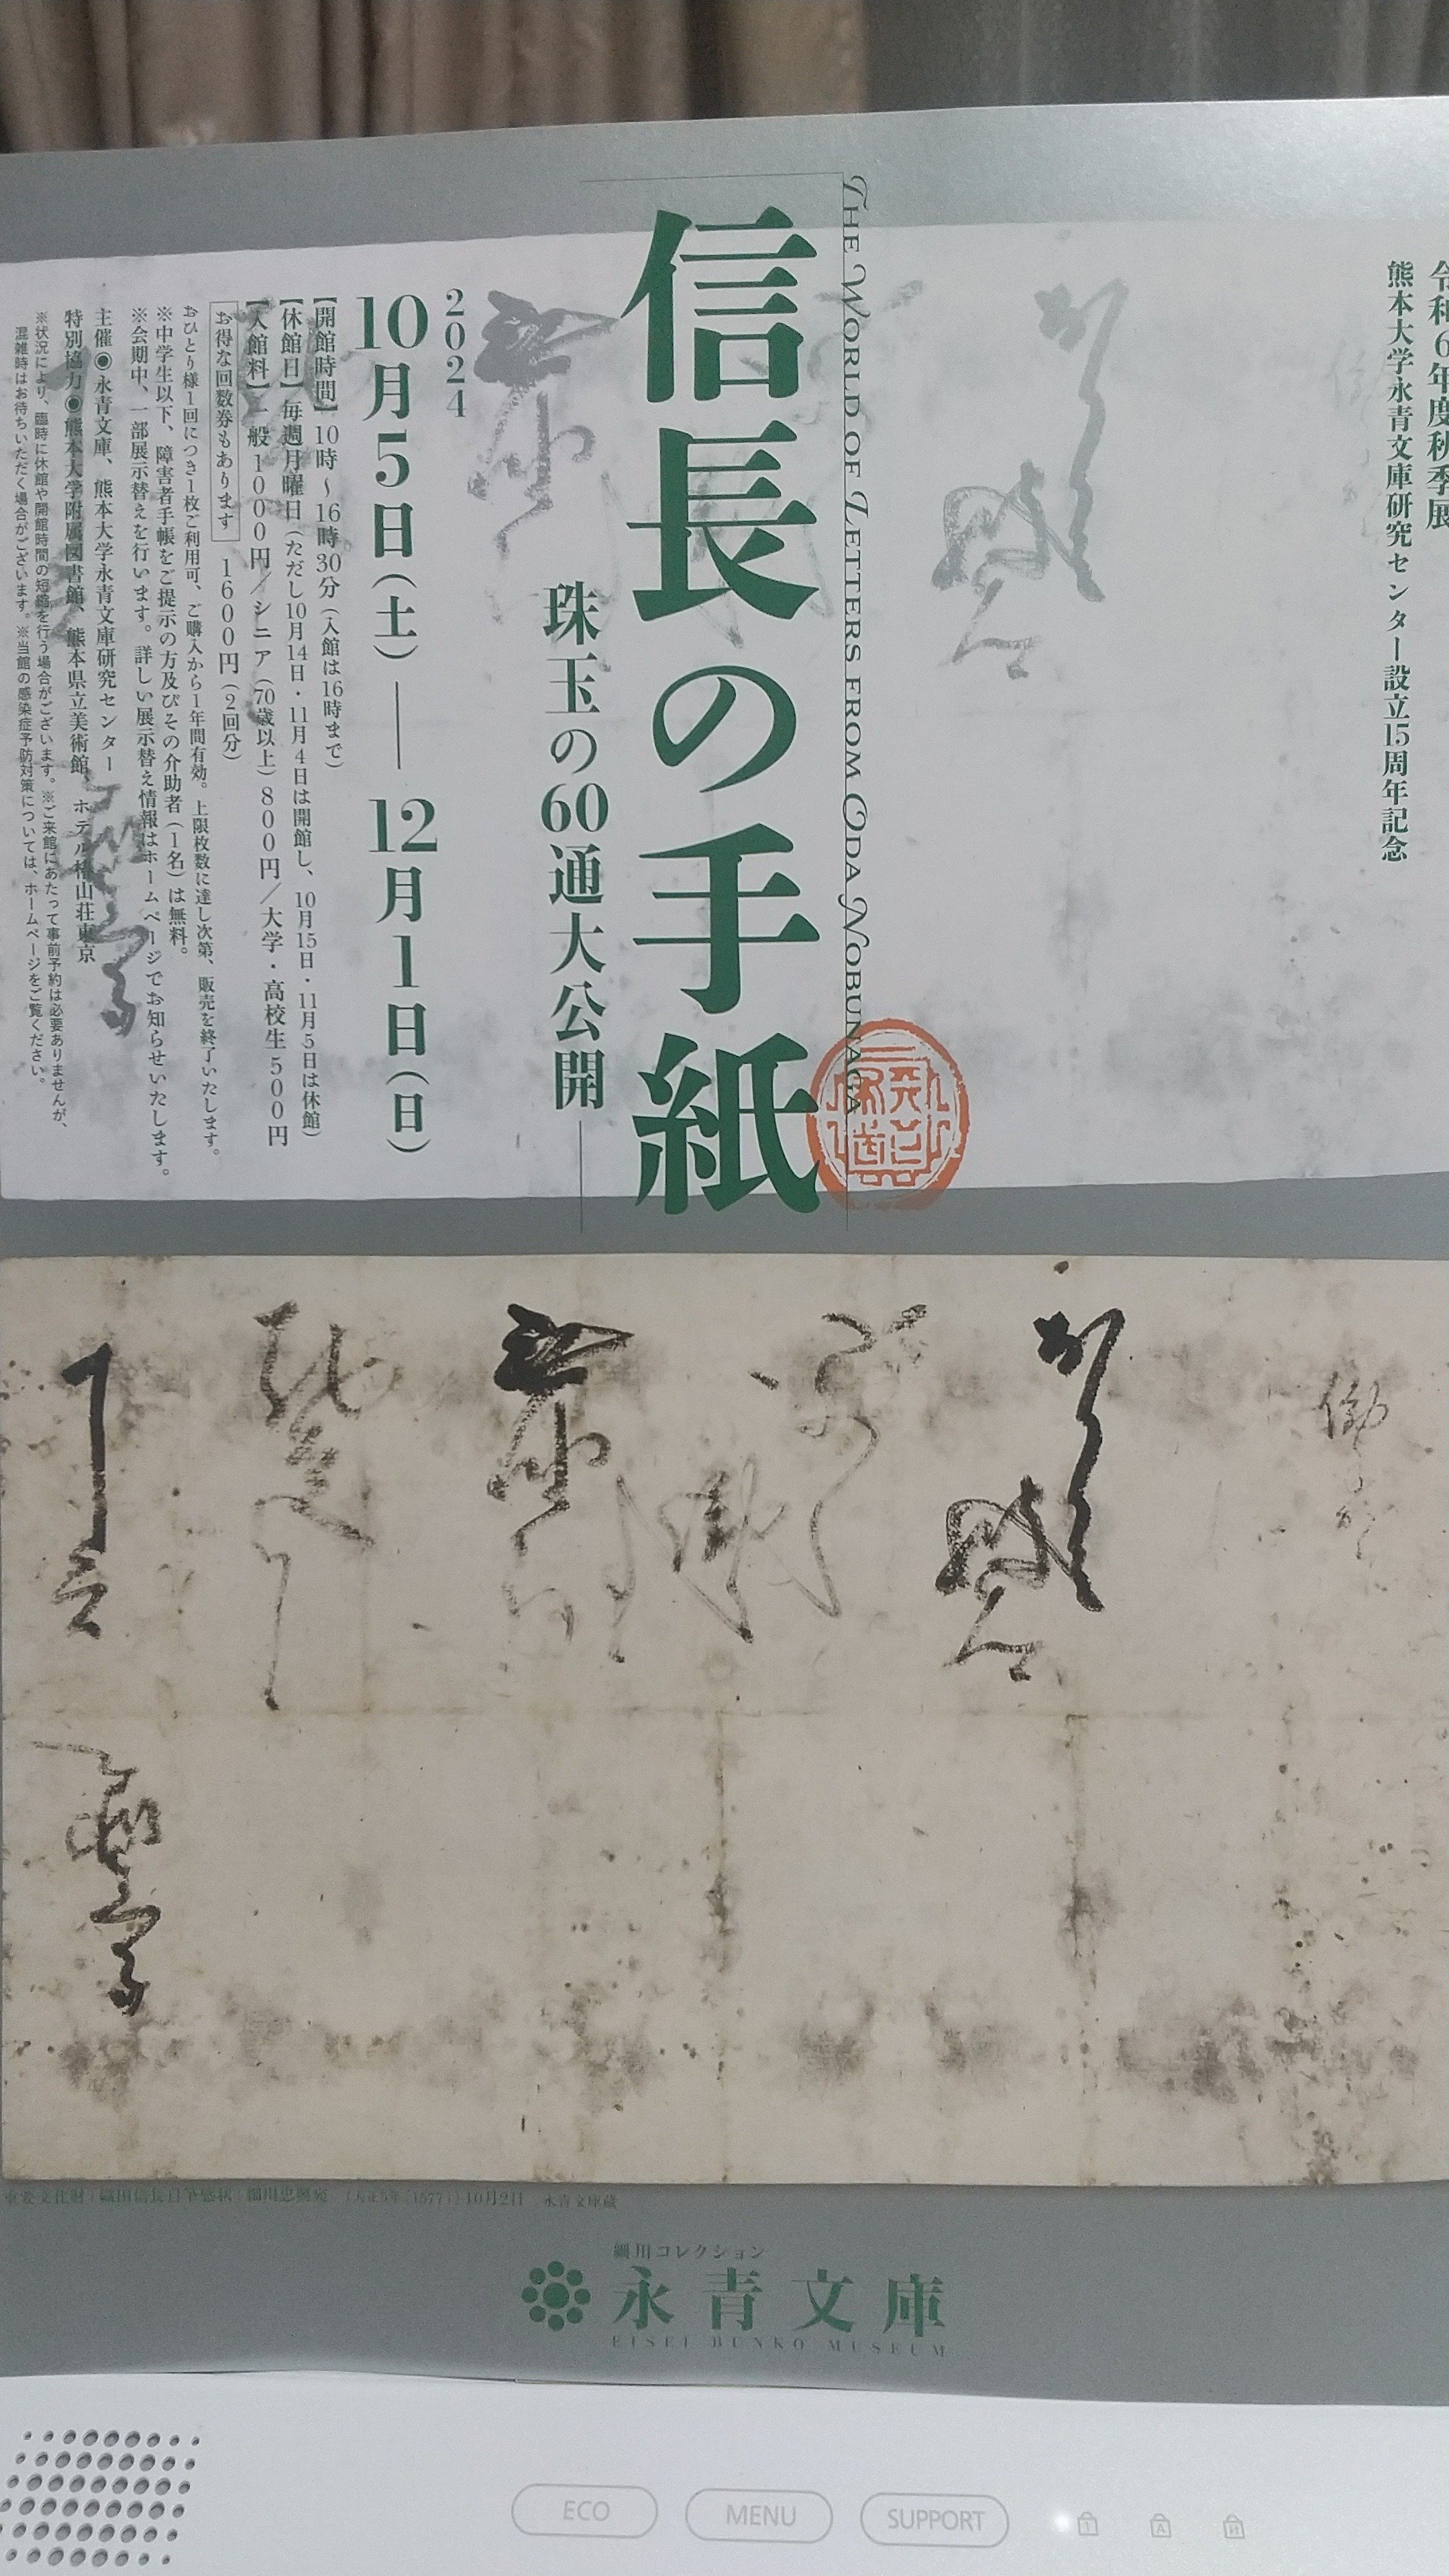 令和6年度秋季展
熊本大学永青文庫研究センター設立15周年記念
THE WORLD OF LETTERS FROM ODA NOBUNAGA
信長の手紙
珠玉の60通大公開
2024
10月5日（土）――12月1日（日）
【開館時間】10時～16時30分（入館は16時まで）
【休館日】毎週月曜日（ただし10月14日・11月4日は開館し、10月15日・11月5日は休館）
【入館料】一般1000円／シニア（70歳以上）800円／大学・高校生500円
お得な回数券もあります 1600円（2回分）
おひとり様1回につき1枚ご利用可、ご購入から1年間有効。上限枚数に達し次第、販売を終了いたします。
※中学生以下、障害者手帳をご提示の方及びその介助者（1名）は無料。
※会期中、一部展示替えを行います。詳しい展示替え情報はホームページでお知らせいたします。
主催◉永青文庫、熊本大学永青文庫研究センター
特別協力◉熊本大学附属図書館、熊本県立美術館、ホテル椿山荘東京
※状況により、臨時に休館や開館時間の短縮を行う場合がございます。※ご来館にあたって事前予約は必要ありませんが、
混雑時はお待ちいただく場合がございます。※当館の感染症予防対策については、ホームページをご覧ください。
重要文化財 織田信長自筆感状 細川忠興宛 （天正5年〈1577〉）10月2日 永青文庫蔵
細川コレクション
永青文庫
EISEI BUNKO MUSEUM
ECO MENU SUPPORT